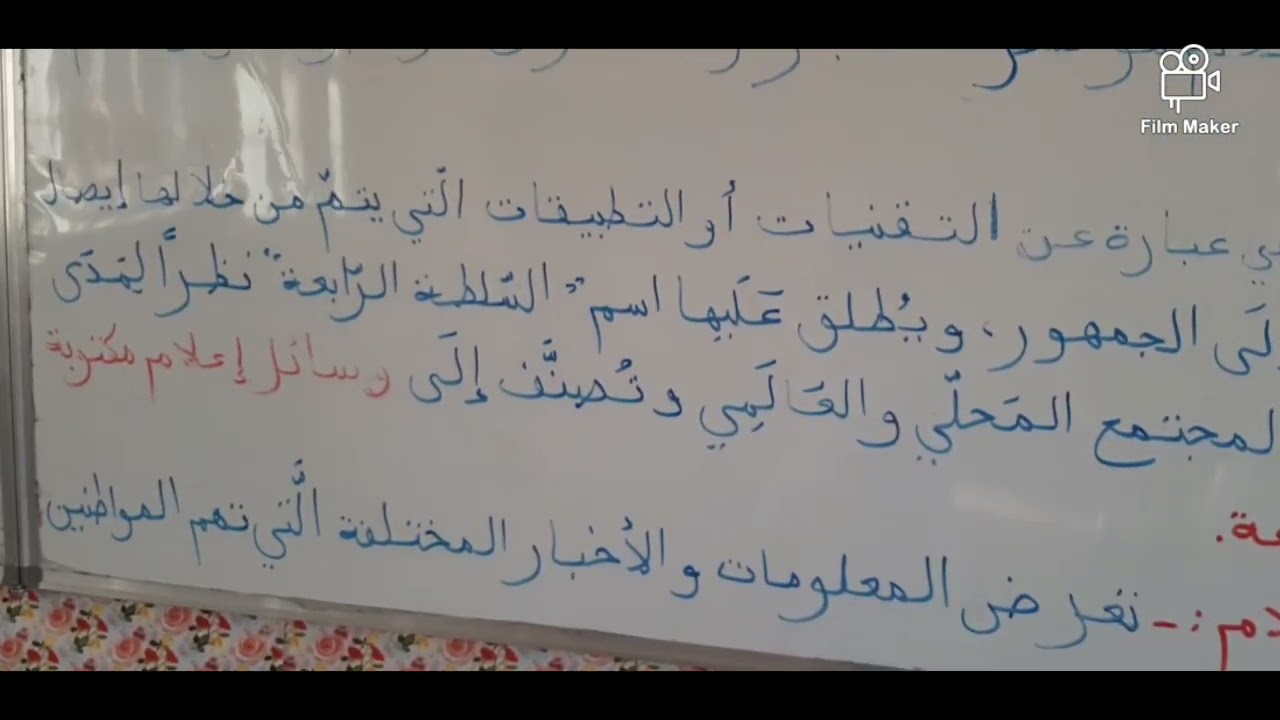 Film Maker
عبارة عن التقنيات أو التطبيقات الّتي يتمّ من خلالها إيصال
الجمهور، ويُطلق عَلَيها اسم "السّلطة الرّابعة" نظراً لِمَدَى
المجتمع المَحلّي والعَالَمِي وتُصنَّف إلَى وسائل إعلام مكتوبة
:- تعرض المعلومات والأخبار المختلفة الَّتي تهم المواطنين